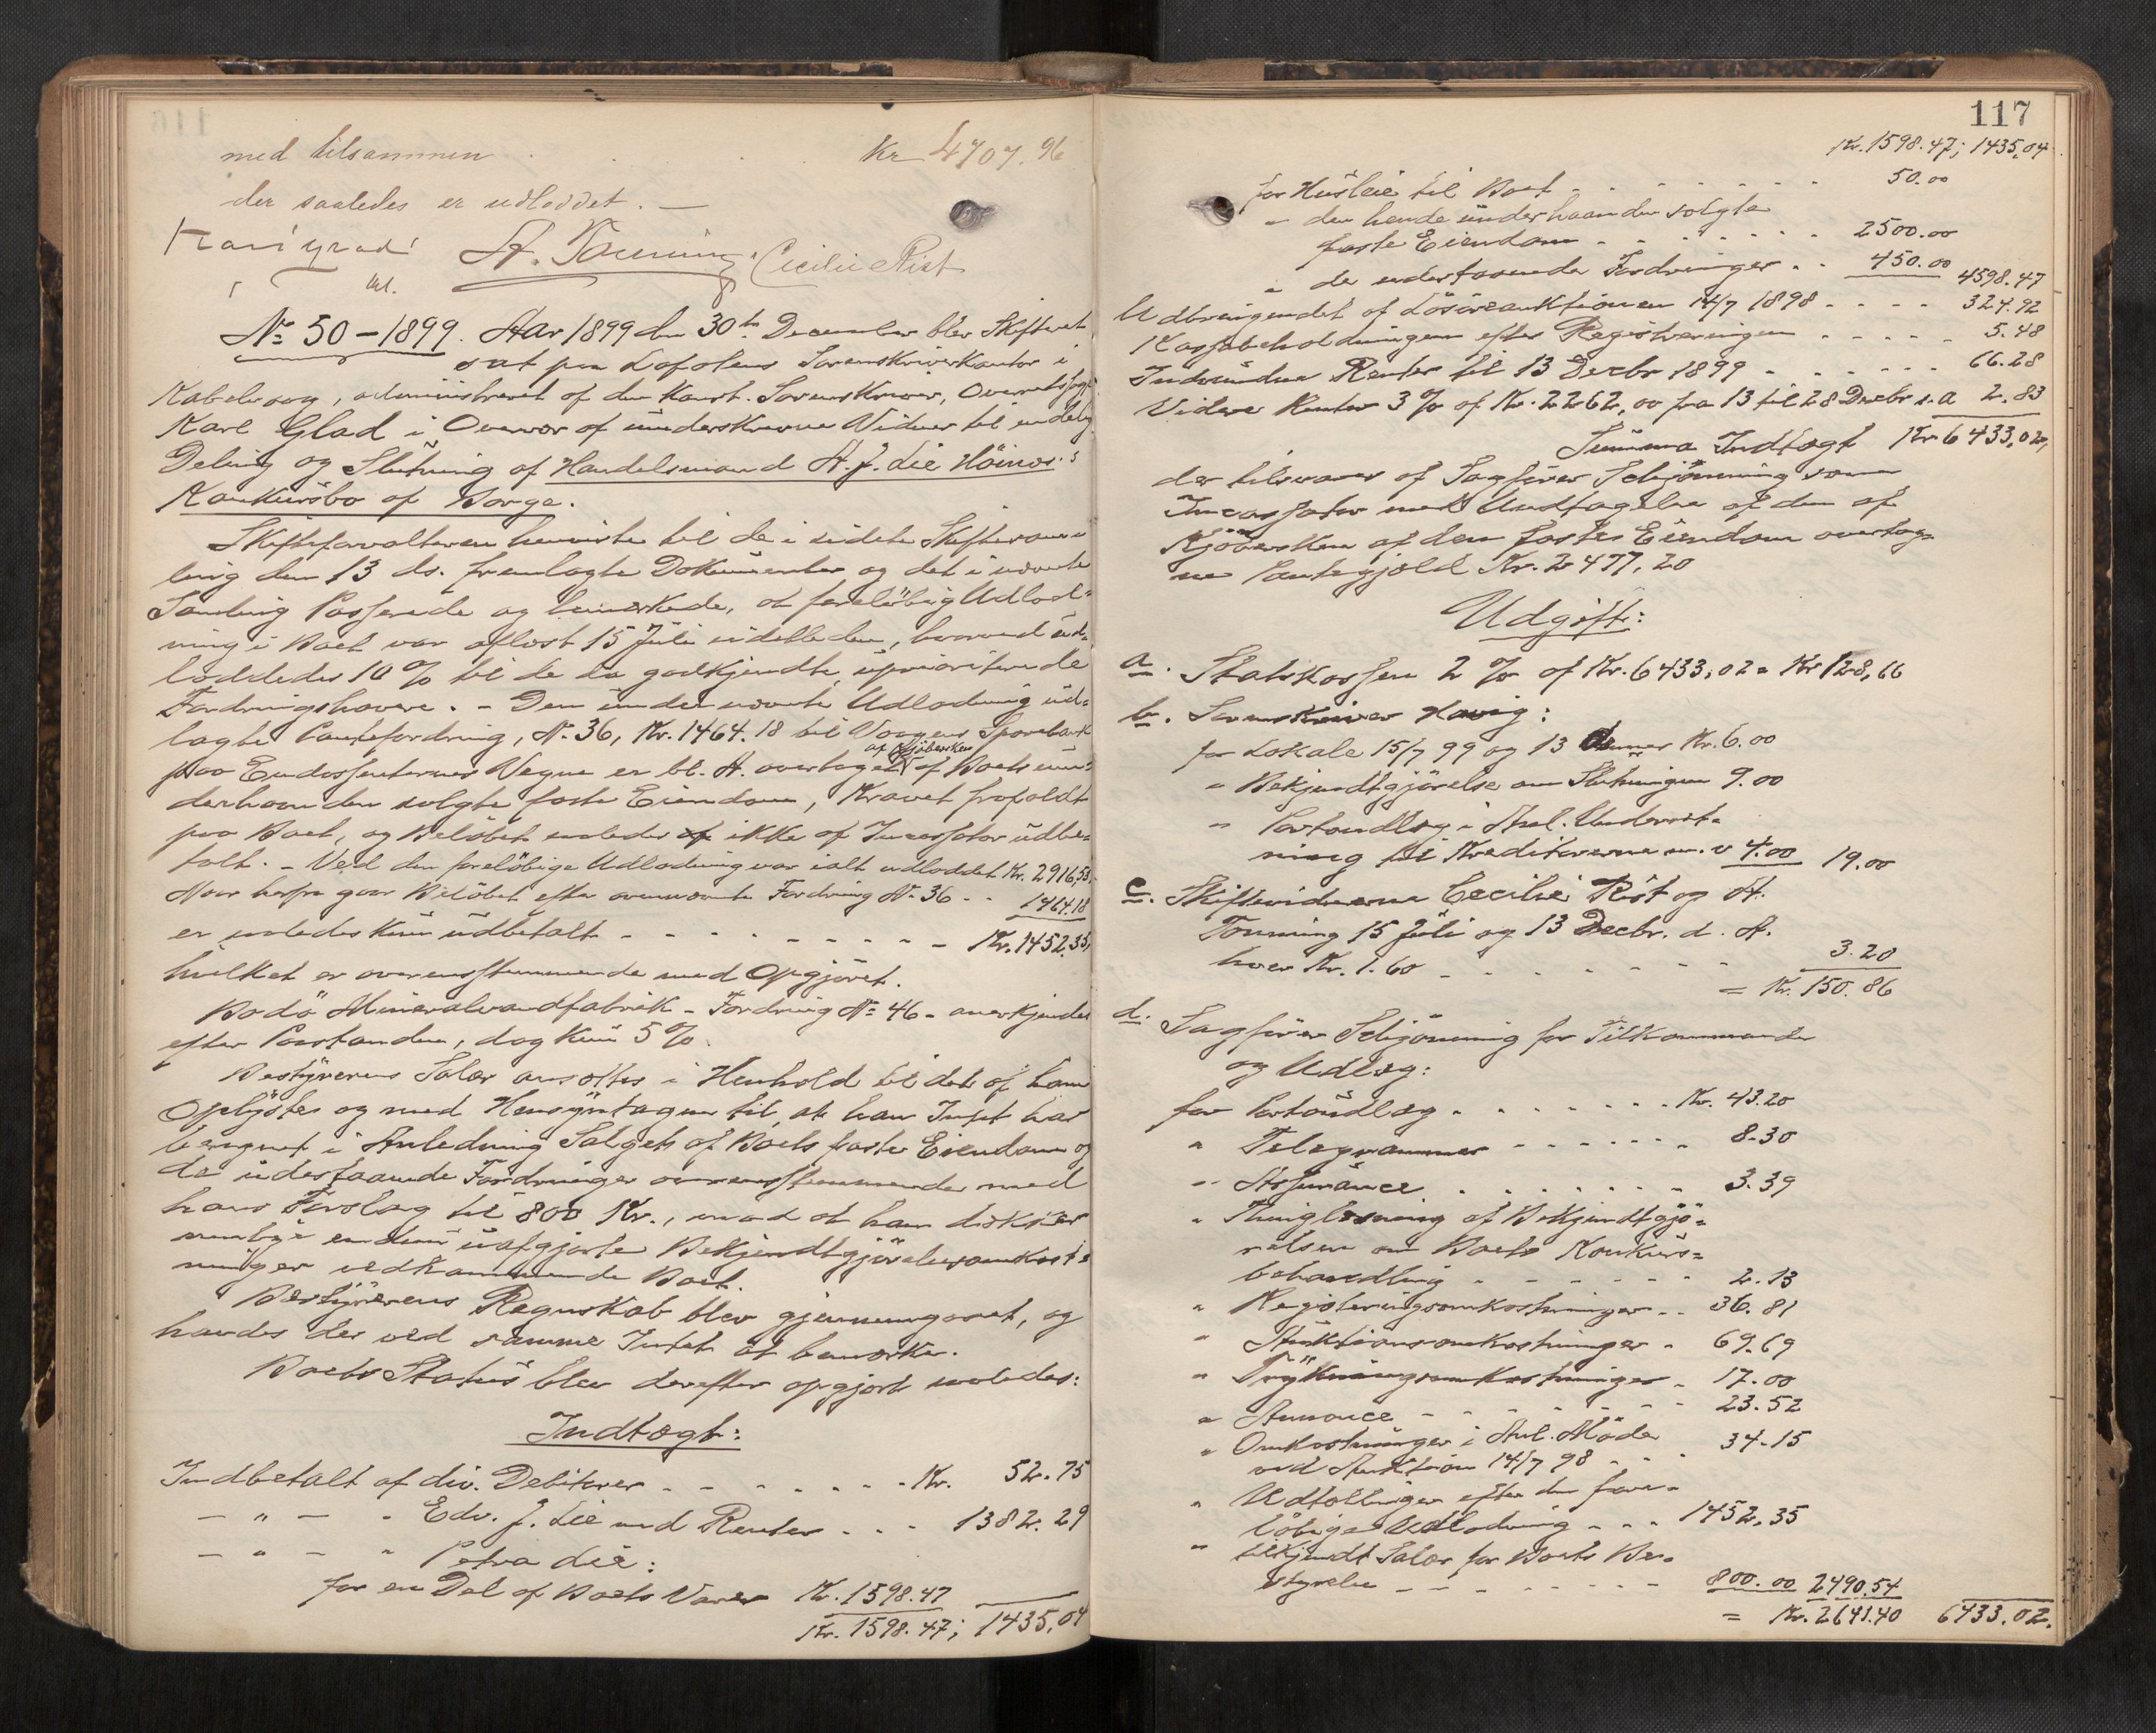 med tilsammen . . . Kr 4707.96
der saaledes er udloddet. —
Karl Glad
A. Tonning Cecilie Rist
kst.
No 50 – 1899. Aar 1899 den 30te December blev Skifteret
sat paa Lofotens Sorenskriverkontor i
Kabelvaag, administreret af den konst. Sorenskriver, Overretssagf.
Karl Glad i Overvær af underskrevne Vidner til endelig
Deling og Slutning af Handelsmand A. J. Lie Höinæs's
Konkursbo af Borge.
Skifteforvalteren henviste til de i sidste Skiftesam-
ling den 13 ds. fremlagte Dokumenter og det i nævnte
Samling Passerede og bemærkede, at foreløbig Udlod-
ning i Boet var aflæst 15 Juli sidstleden, hvorved ud-
loddedes 10 % til de da godkjendte, uprioriterede
Fordringshavere. – Den under nævnte Udlodning ud-
lagte Pantefordring, No 36, Kr. 1464.18 til Vaagens Sparebank
paa Endossenternes Vegne er bl. A. overtaget af Kjöbersken af Boets un-
derhaanden solgte faste Eiendom, Kravet frafaldt
paa Boet, og Belöbet saaledes ikke af Incassator udbe-
talt. – Ved den forelöbige Udlodning var ialt udloddet Kr. 2916,53.
Naar herfra gaar Belöbet efter ovennævnte Fordring No 36 . . 1464.18
er saaledes kun udbetalt - - - - - - - - - Kr. 1452.35,
hvilket er overensstemmende med Opgjöret.
Bodö Mineralvandfabrik – Fordring No 46 – anerkjendes
efter Paastanden, dog kun 5 %.
Bestyrerens Salær ansattes i Henhold til det af ham
Oplyste og med Hensyntagen til, at han Intet har
beregnet i Anledning Salget af Boets faste Eiendom og
de udestaaende Fordringer overensstemmende med
hans Forslag til 800 Kr., mod at han dækker
mulige endnu uafgjorte Bekjendtgjörelsesomkost-
ninger vedkommende Boet.
Bestyrerens Regnskab blev gjennemgaaet, og
havdes der ved samme Intet at bemærke.
Boets Status blev derefter opgjort saaledes:
Indtægt:
Indbetalt af div. Debitorer - - - - - - - Kr. 52.75
— " — " Edv. J. Lie med Renter . . . 1382.29
— " — " Petra Lie:
for en Del af Boets Varer Kr. 1598.47
Kr. 1598.47; 1435,04
117
Kr. 1598.47; 1435,04
for Husleie til Boet - - - - - - - 50.00
" den hende underhaanden solgte
faste Eiendom . . . . . . . 2500.00
" de udestaaende Fordringer . . 450.00 4598.47
Udbringendet af Lösöreauktionen 14/7 1898 - - - - 324.92
Kassabeholdningen efter Registreringen - - - - - 5.48
Indvundne Renter til 13 Decbr 1899 - - - - - - 66.28
Videre Renter 3 % af Kr. 2262,00 fra 13 til 28 Decbr s. A 2.83
Summa Indtægt Kr. 6433,02,
der tilsvares af Sagförer Schjönning som
Incassator med Undtagelse af den af
Kjöbersken af den faste Eiendom overtag-
ne Pantegjæld Kr. 2477,20
Udgift:
a. Statskassen 2 % af Kr. 6433,02 = Kr 128,66
b. Sorenskriver Havig:
for Lokale 15/7 99 og 13 dennes Kr. 6.00
" Bekjendtgjörelse om Slutningen 9.00
" Portoudlæg i Anl. Underret-
ning til Kreditorerne m. v 4.00 19.00
c. Skiftevidnerne Cecilie Rist og A.
Tonning 15 Juli og 13 Decbr. d. A.
hver Kr. 1.60 - - - - - - - 3.20
= Kr. 150.86
d. Sagförer Schjönning for Tilkommende
og Udlæg:
for Portoudlæg . . . . . . . . Kr. 43.20
" Telegrammer - - - - - - - 8.30
" Assurance . . . . . . . 3.39
" Thinglæsning af Bekjendtgjö-
relsen om Boets Konkurs-
behandling - - - - - - 2.13
" Registeringsomkostninger . . 36.81
" Auktionsomkostninger . 69.69
" Trykningsomkostninger . 17.00
" Annonce - - - - - - - 23.52
" Omkostninger i Anl. Möde
ved Auktion 14/7 98 . . . 34.15
" Udtællinger efter den fore-
löbige Udlodning . . . 1452,35
" tilkjendt Salær for Boets Be-
styrelse - - - - - - - 800.00 2490.54
= Kr. 2641.40 6433.02.